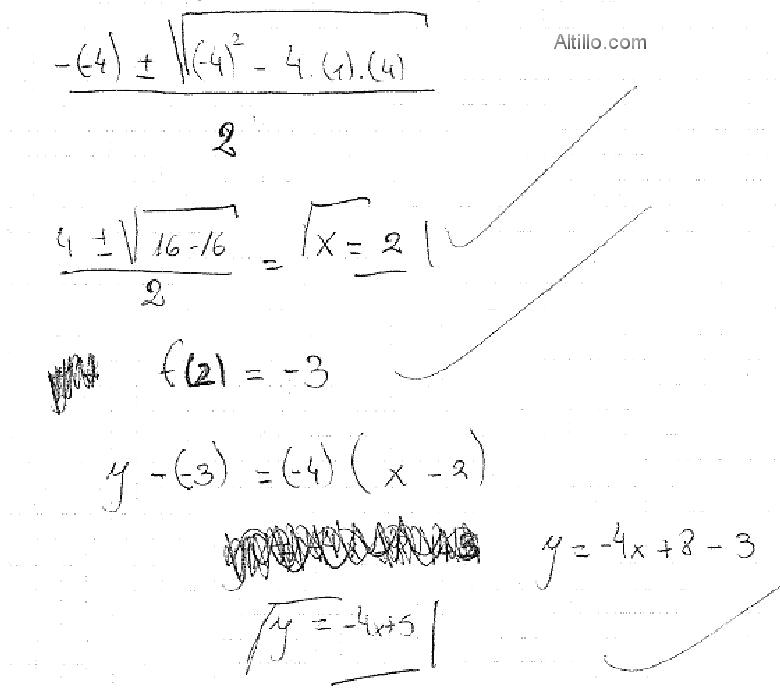 Altillo.com
-(-4) ± √(-4)² - 4.(1).(4)
2
4 ± √16-16 = x = 2
2
f(2) = -3
y -(-3) = (-4) (x - 2)
y = -4x + 8 - 3
y = -4x+5